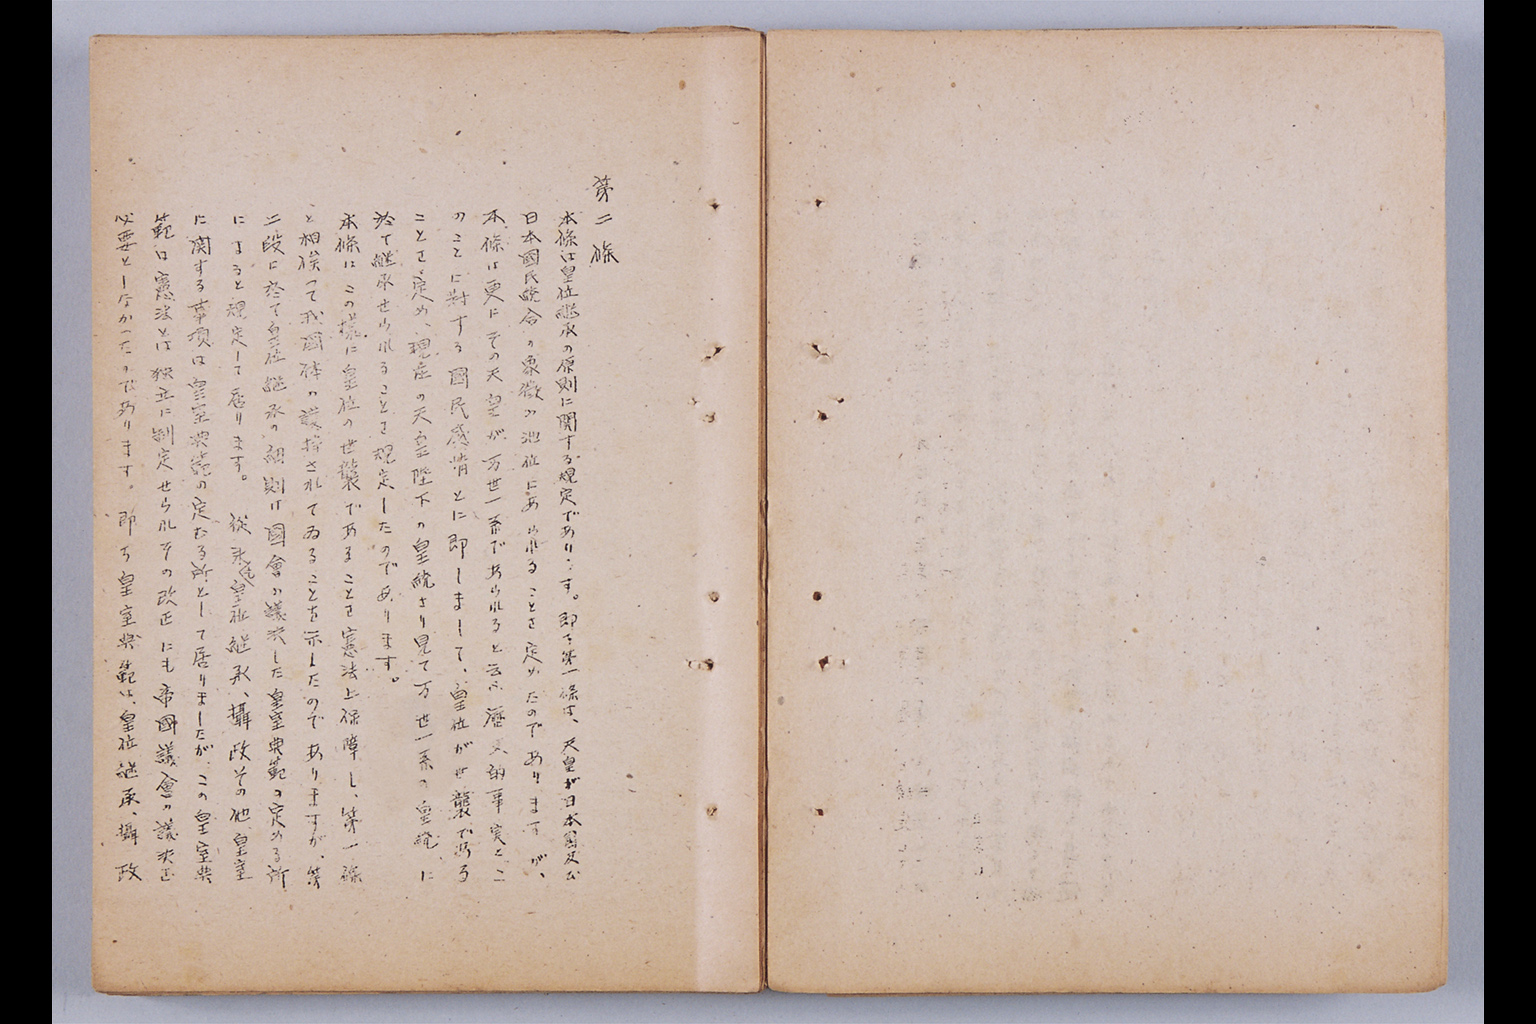 第二條
本條は皇位継承の原則に関する規定であります。即ち第一條は、天皇が日本國及び
日本國民統合の象徴の地位にあられることを定めたのでありますが、
本條は更にその天皇が万世一系であられると云ふ歴史的事実とこ
のことに対する國民感情とに即しまして、皇位が世襲である
ことを定め、現在の天皇陛下の皇統より見て万世一系の皇統に
於て継承せられることを規定したのであります。
本條はこの様に皇位の世襲であることを憲法上保障し、第一條
と相俟って我國体の護持されてゐることを示したのでありますが、第
二段に於て皇位継承の細則は國會の議決した皇室典範の定める所
によると規定して居ります。従来も皇位継承、攝政その他皇室
に関する事項は皇室典範の定むる所として居りましたが、この皇室典
範は憲法とは独立に制定せられその改正にも帝國議會の議決を
必要としなかったのであります。即ち皇室典範は、皇位継承、攝政